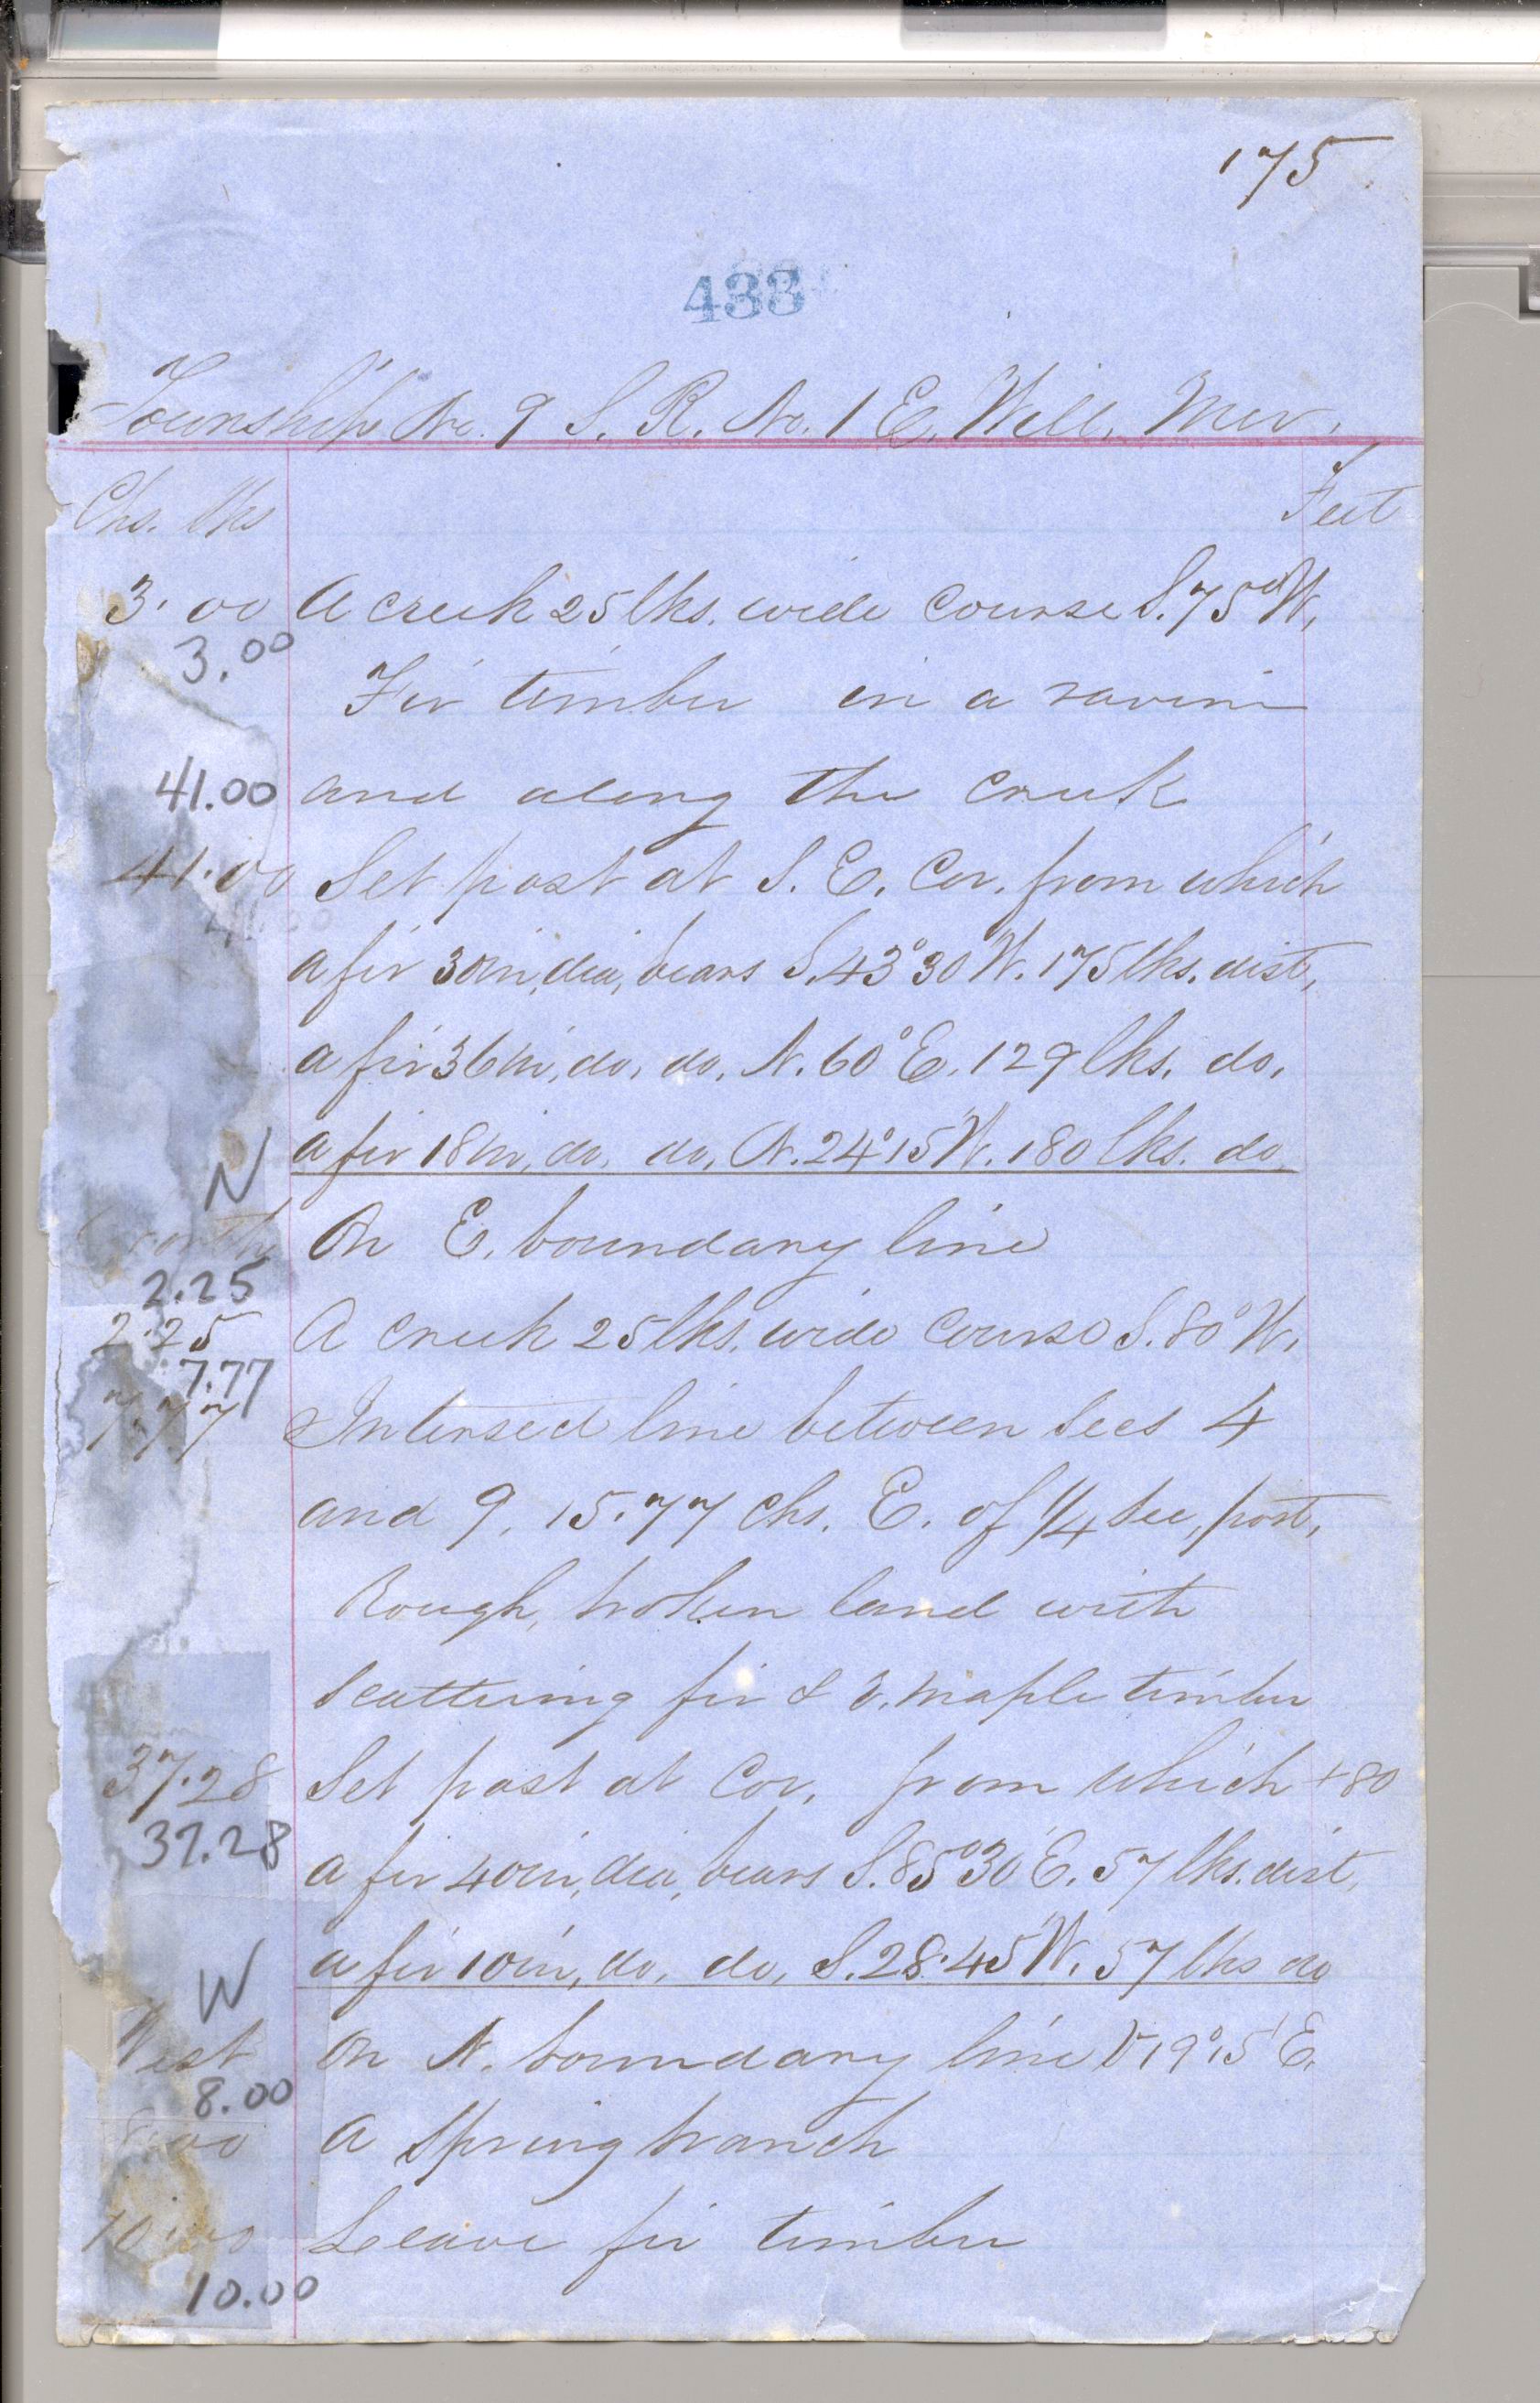 175
433
Township No. 9 S. R. No. 1 E. Will. Mer.
Chs. lks Feet
3.00 A creek 25 lks. wide course S. 75° W.
3.00
Fir timber in a ravine
41.00 and along the creek
41.00 Set post at S. E. Cor. from which
a fir 30 in. dia. bears S. 43° 30 W. 175 lks. dist.
a fir 36 in. do. do. N. 60° E. 129 lks. do.
a fir 18 in. do. do. N. 24° 15' W. 180 lks. do
N
North On E. boundary line
2.25
2.25 A creek 25 lks. wide course S. 80° W.
7.77
7.77 Intersect line between Secs 4
and 9, 15.77 chs. E. of 1/4 Sec. post.
Rough, broken land with
scattering fir & V. maple timber
37.28 Set post at Cor. from which +80
37.28
a fir 40 in. dia. bears S. 85° 30' E. 57 lks. dist.
a fir 10 in. do. do. S. 28° 45' W. 57 lks do
W
West On N. boundary line V 19° 15' E.
8.00
8.00 A Spring branch
10.00 Leave fir timber
10.00